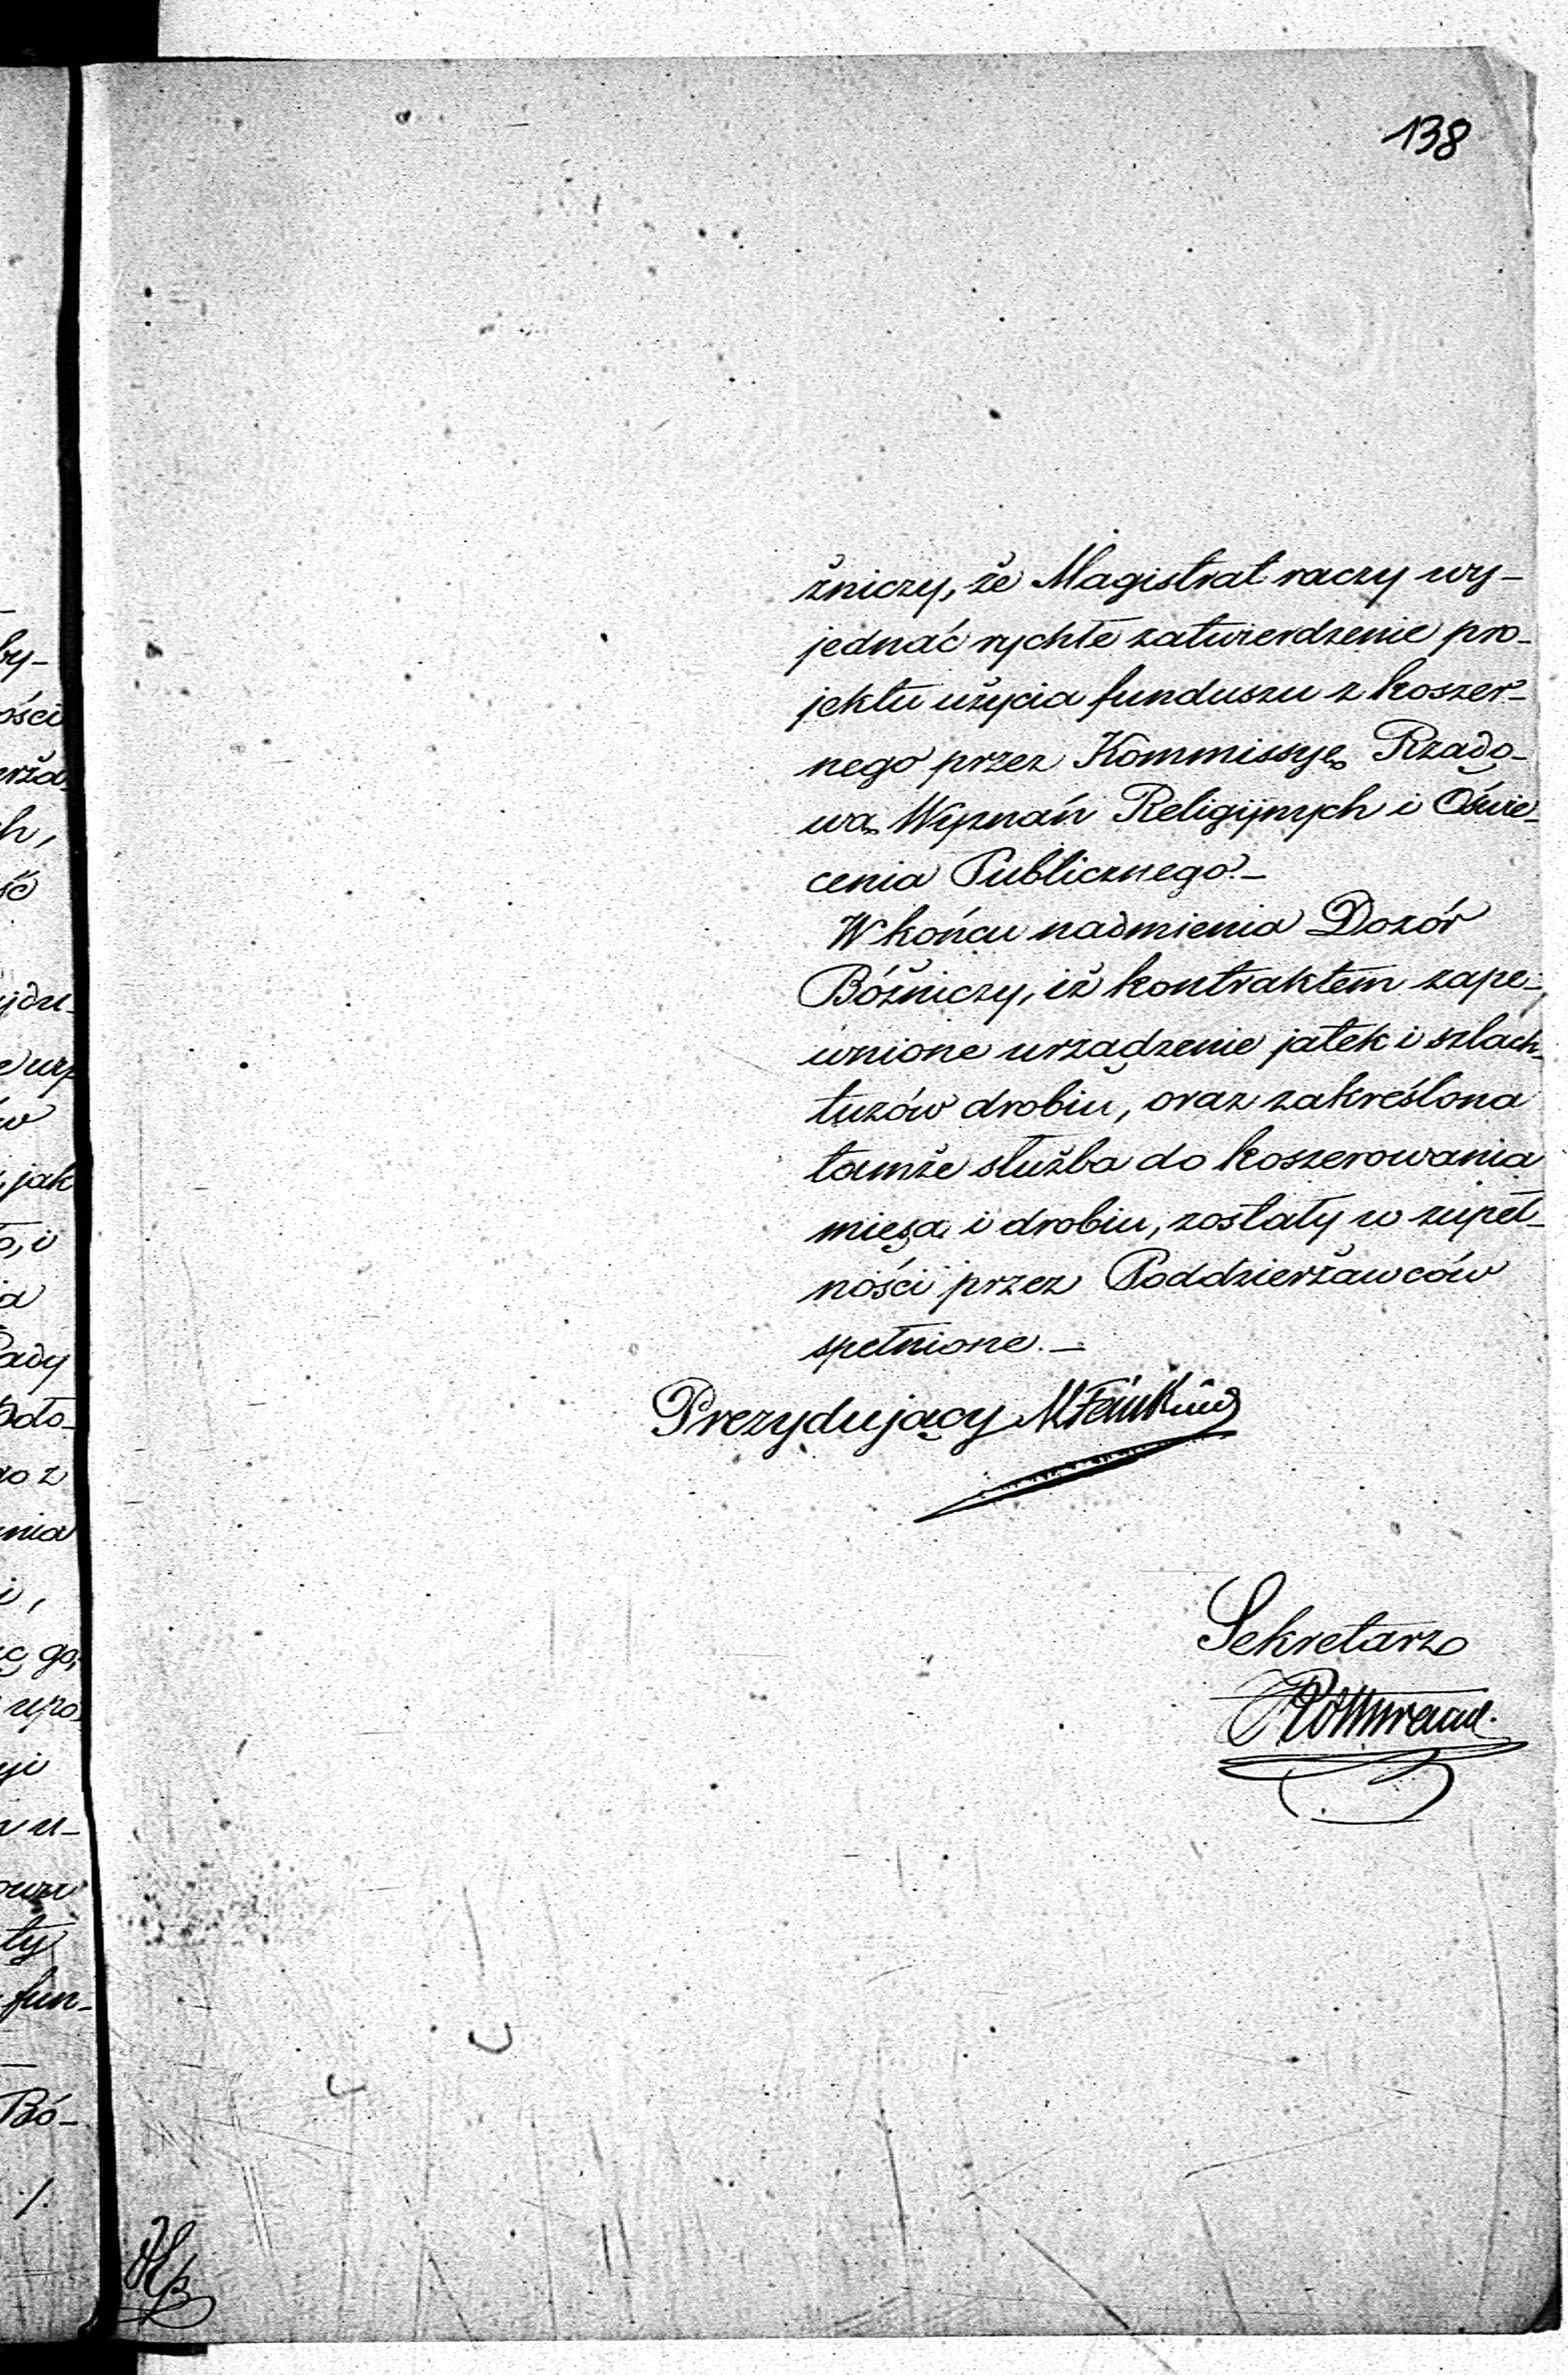 138
żniczy, że Magistrat raczy wy-
jednać rychłe zatwierdzenie pro-
jektu użycia funduszu z koszer-
nego przez Kommissyę Rządo-
wą Wyznań Religijnych i Oświe-
cenia Publicznego.—
W końcu nadmienia Dozór
Bóżniczy, iż kontraktem zape-
wnione urządzenie jatek i szlach-
tuzów drobiu, oraz zakreślona
tamże służba do koszerowania
mięsa i drobiu, zostały w zupeł-
ności przez Poddzierżawców
spełnione.—
Prezydujący
Sekretarz
by-
ości
h,
jdu-
w
jak
i
ia
ady
nia
i,
yi
u-
ty
fun-
Bó-